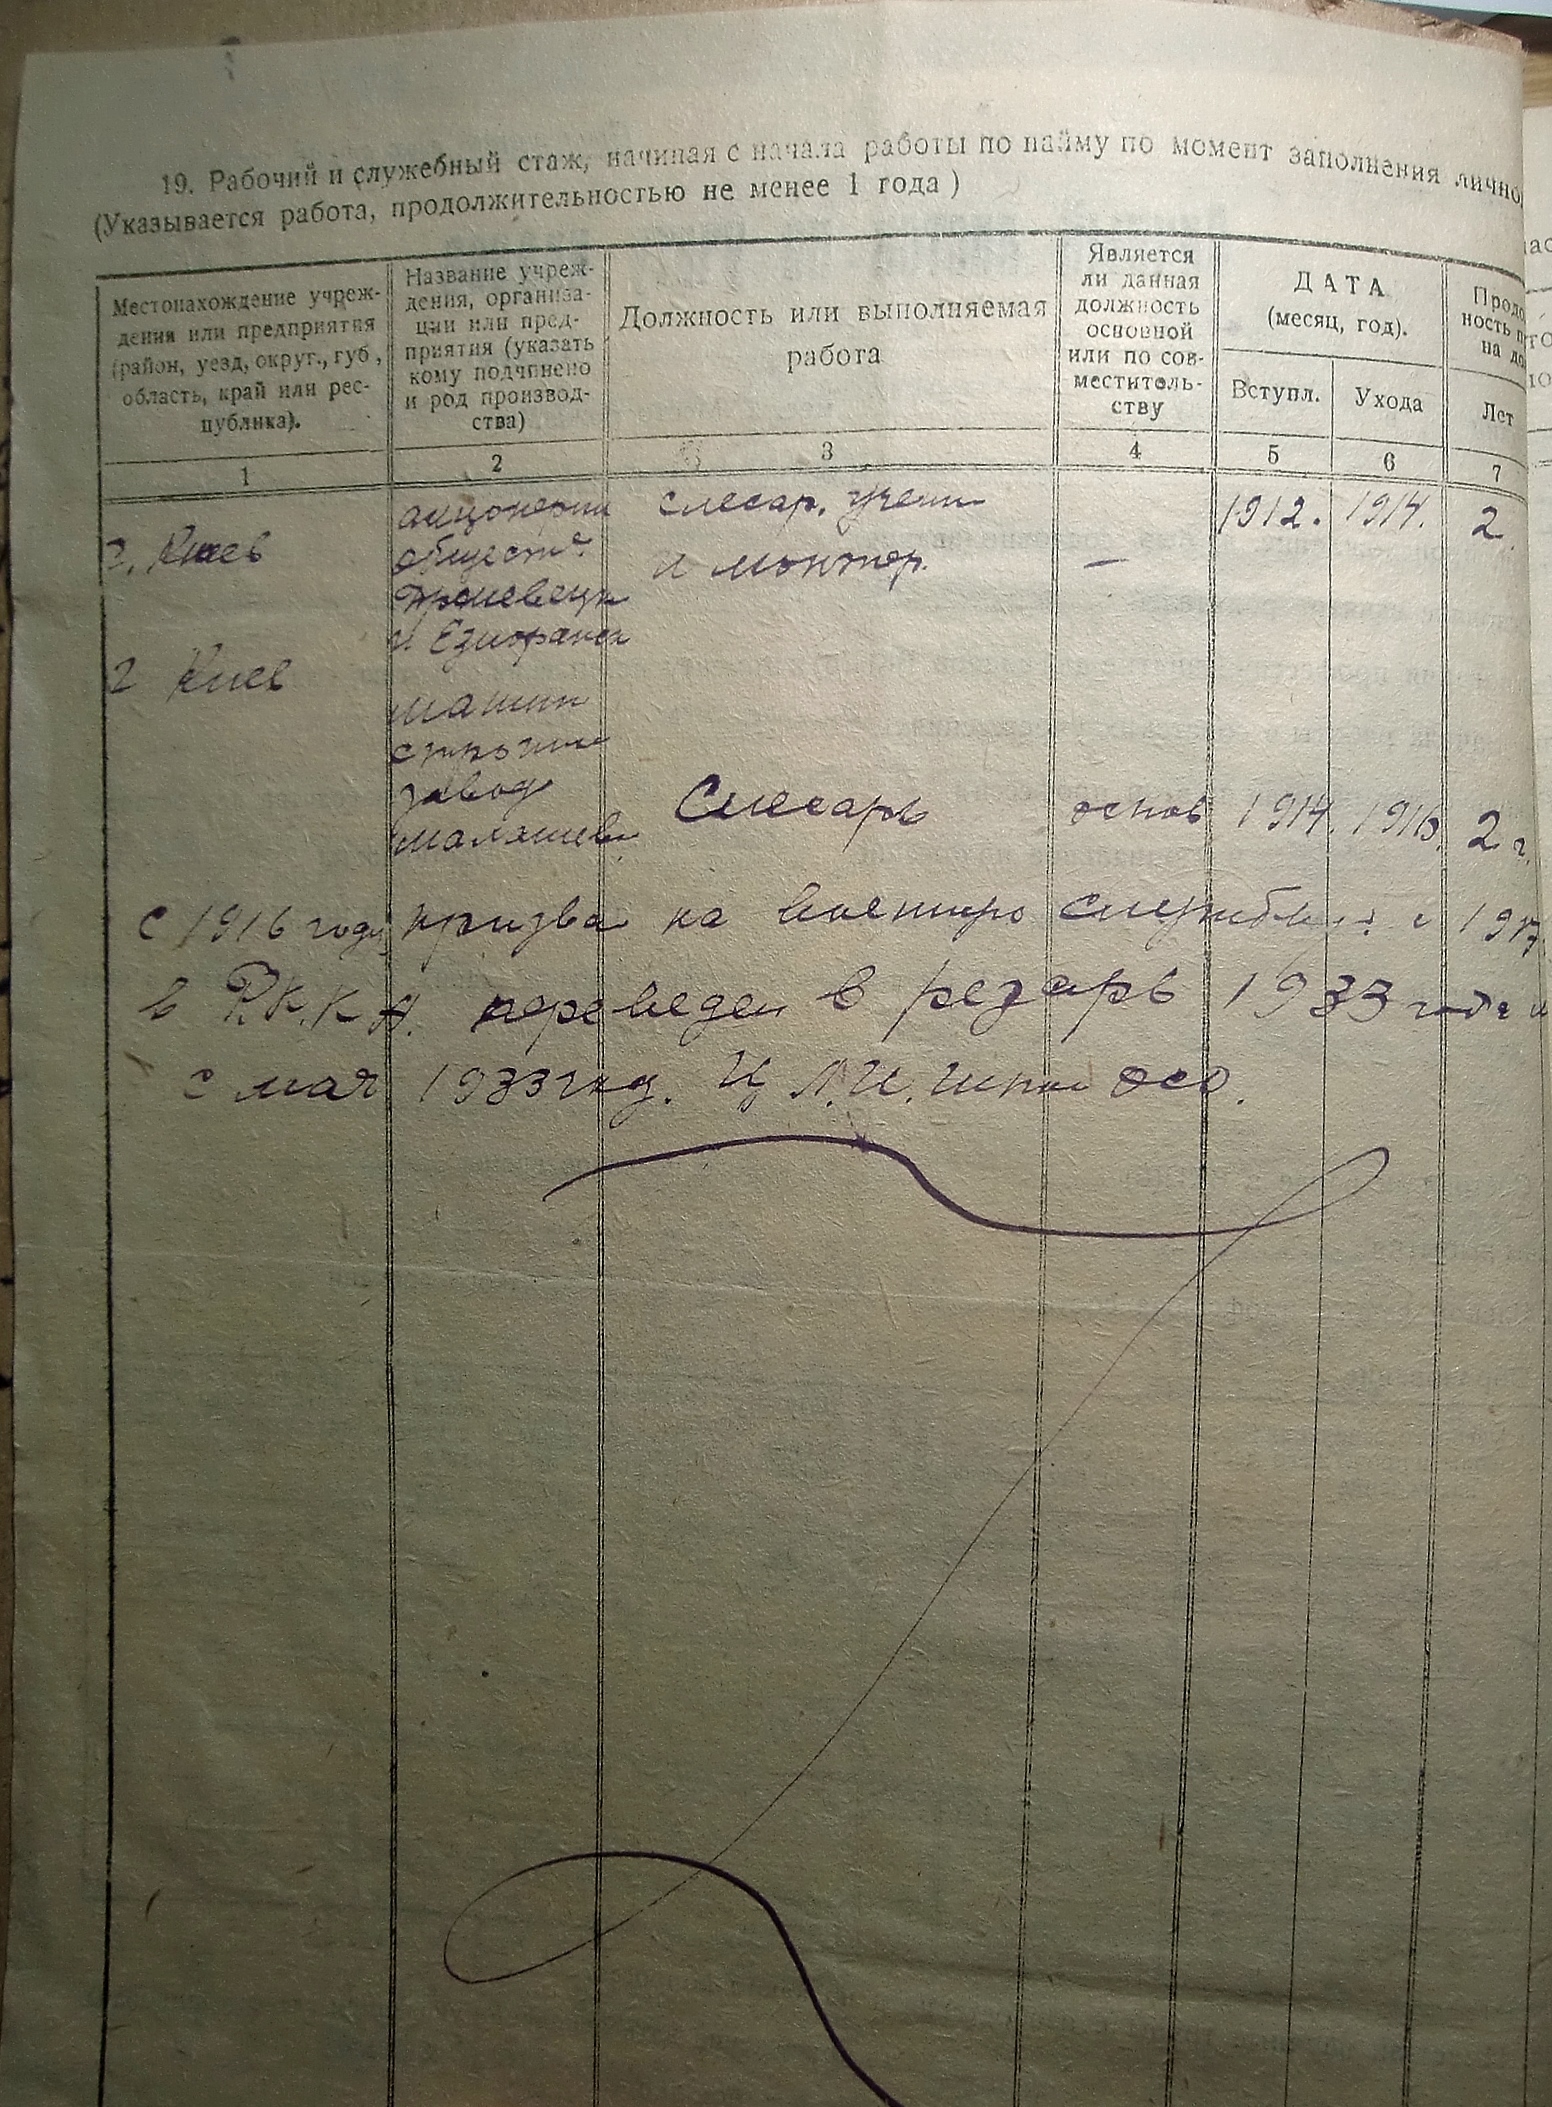 19. Рабочий и служебный стаж, начиная с начала работы по найму по момент заполнения лично
(Указывается работа, продолжительностью не менее 1 года)
Местонахождение учреж-
дения или предприятия
(район, уезд, округ., губ,
область, край или рес-
публика).
Название учреж-
дения, организа-
ции или пред-
приятия (указать
кому подчинено
и род производ-
ства)
Должность или выполняемая
работа
Является
ли данная
должность
основной
или по сов-
меститель-
ству
ДАТА
(месяц, год).
Вступл.
Ухода
Продо
ность п
на до
Лет
1 2 3 4 5 6 7
г. Киев
акционерн
обществ.
слесар. учени
и монтер.
—
1912. 1914. 2.
г Киев
машин
строит
завод
Слесарь основ 1914. 1916. 2 г.
с 1916 году призва на военную службу и 1917
в Р.К.К.А. переведен в резерв 1933 года и
с мая 1933 год. осо.